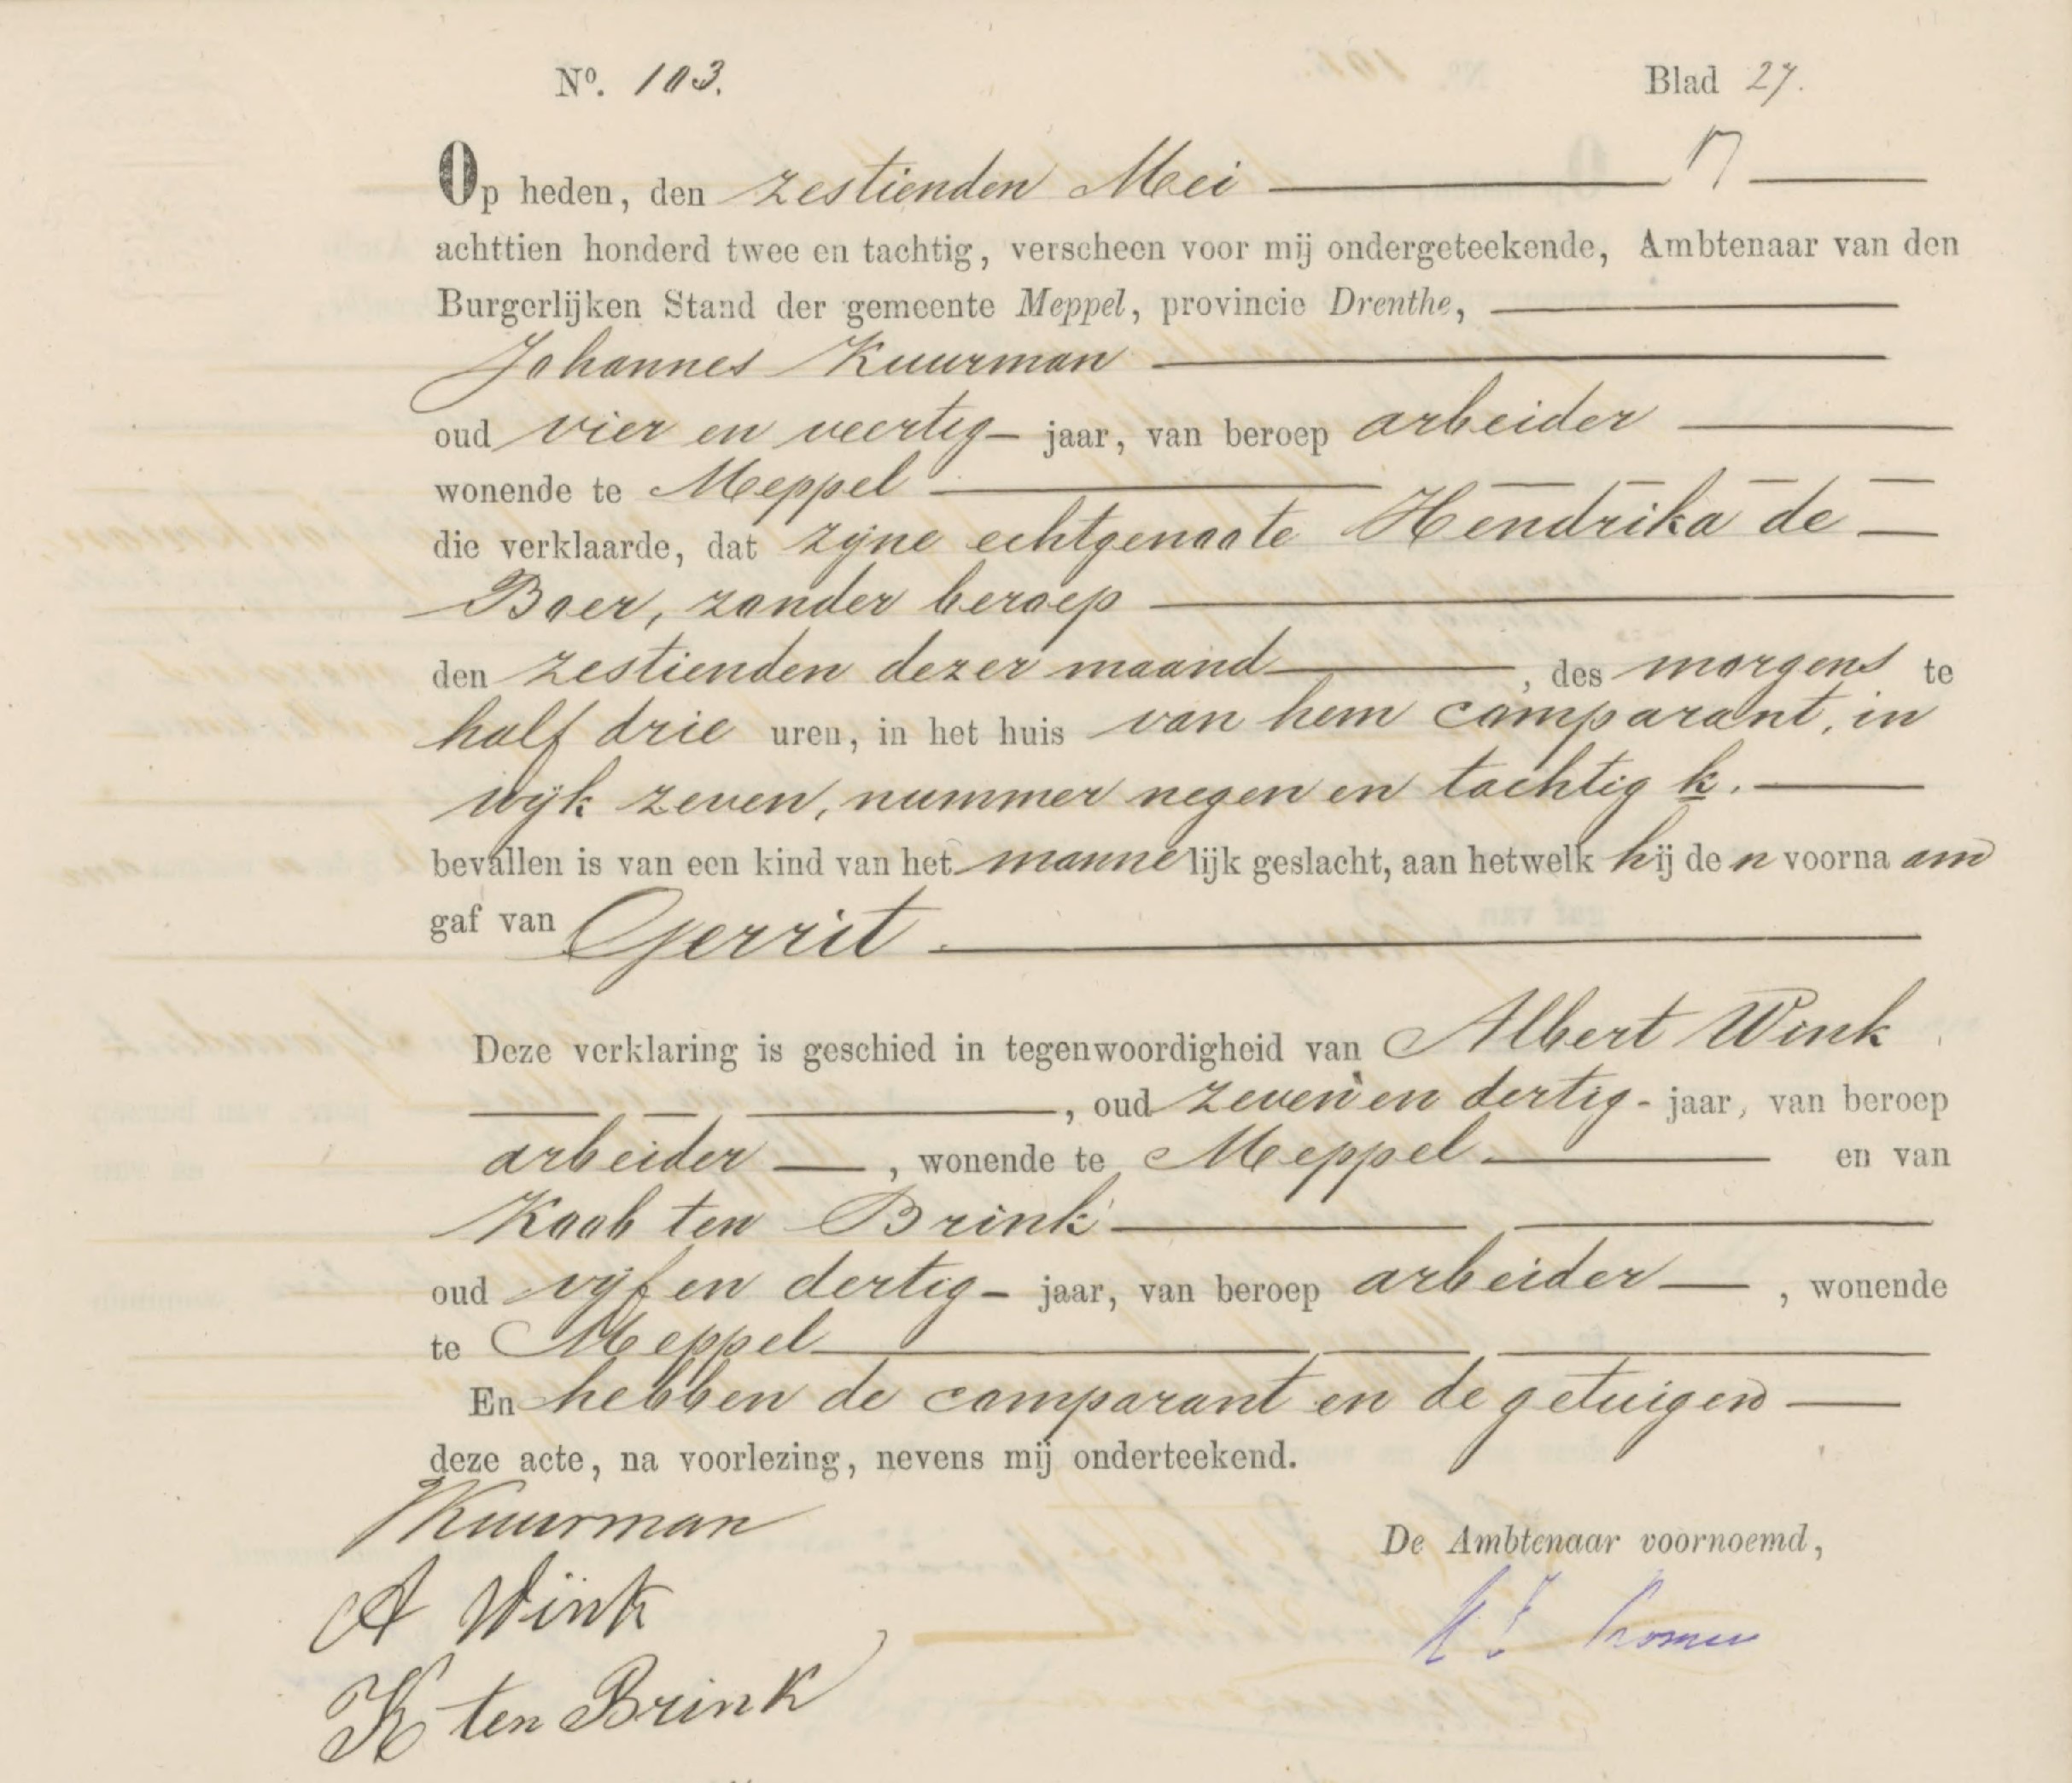 Nº. 103. Blad 27.
Op heden, den zestienden Mei
achttien honderd twee en tachtig, verscheen voor mij ondergeteekende, Ambtenaar van den
Burgerlijken Stand der gemeente Meppel, provincie Drenthe,
Johannes Kuurman
oud vier en veertig jaar, van beroep arbeider
wonende te Meppel
die verklaarde, dat zijne echtgenoote Hendrika de
Boer, zonder beroep
den zestienden dezer maand, des morgens te
half drie uren, in het huis van hem comparant, in
wijk zeven, nummer negen en tachtig k.
bevallen is van een kind van het mannelijk geslacht, aan hetwelk hij den voornaam
gaf van Gerrit.
Deze verklaring is geschied in tegenwoordigheid van Albert Wink
, oud zeven en dertig - jaar, van beroep
arbeider, wonende te Meppel en van
Koob ten Brink
oud vijf en dertig - jaar, van beroep arbeider, wonende
te Meppel
En hebben de comparant en de getuigen
deze acte, na voorlezing, nevens mij onderteekend.
Kuurman
De Ambtenaar voornoemd,
A Wink
K ten Brink